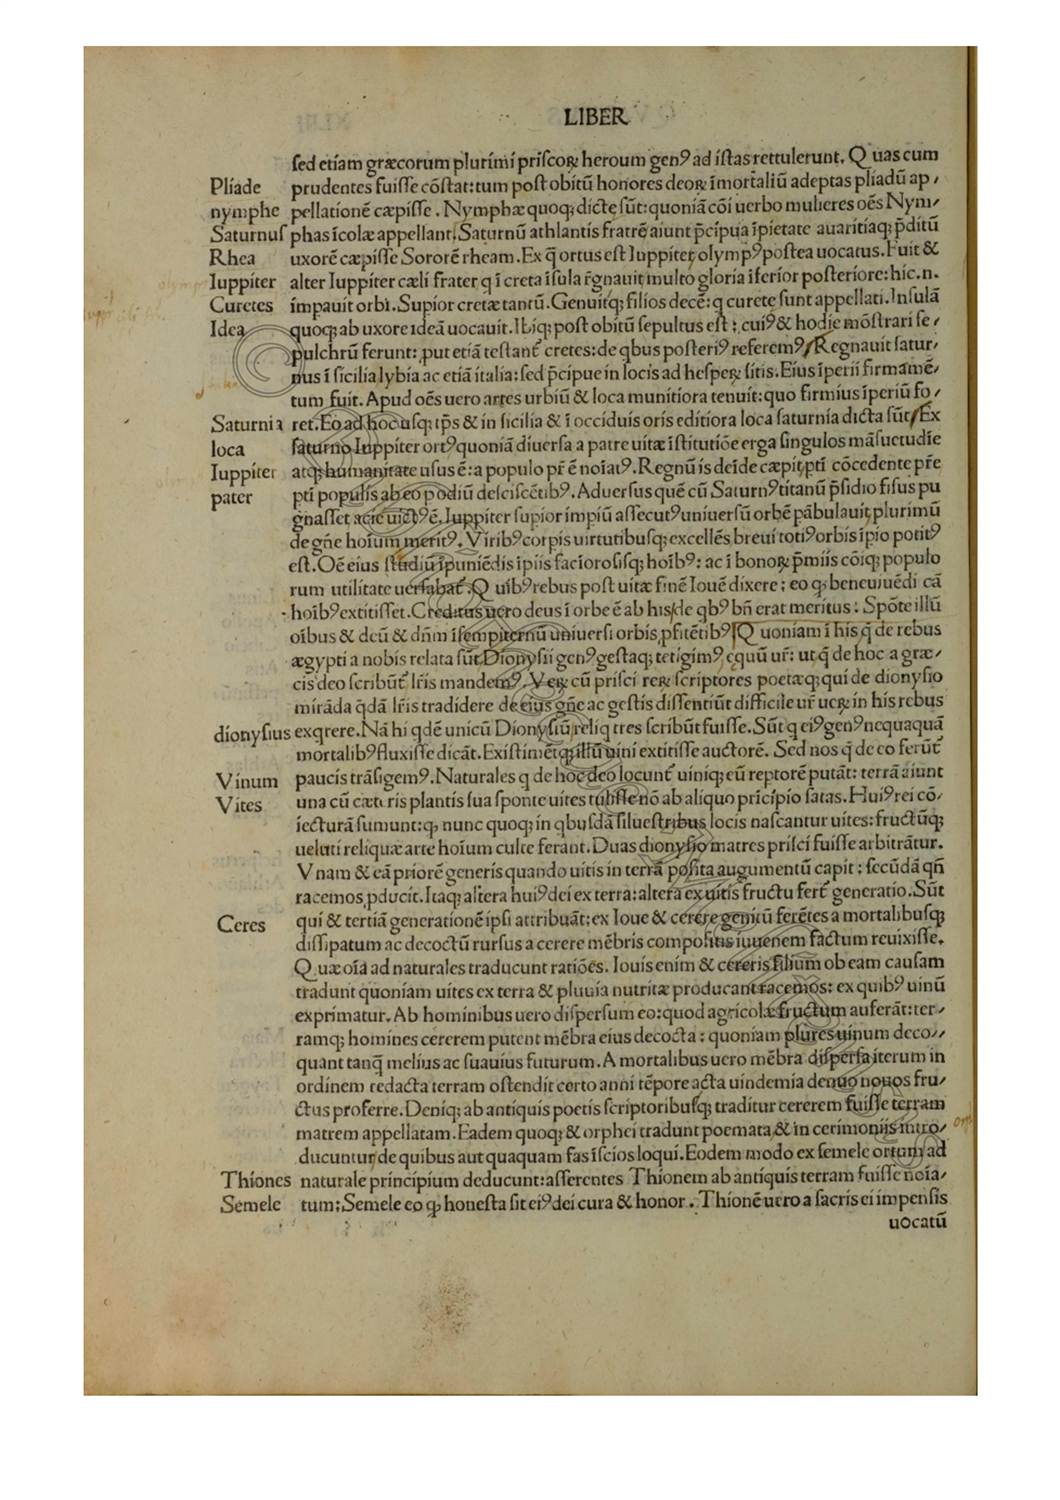 LIBER
sed etiam græcorum plurimi priscoꝝ heroum genꝰ ad istas rettulerunt. Quas cum
Pliade prudentes fuisse cōstat: tum post obitū honores deoꝝ īmortaliū adeptas pliadū ap/
nymphe pellationē cæpisse. Nymphæ quoqꝫ dicte sūt: quoniā cōi uerbo mulieres oēs Nym/
Saturnus phas īcolæ appellant. Saturnū athlantis fratrē aiunt p̄cipua īpietate auaritiaqꝫ p̄ditū
Rhea uxorē cæpisse Sororē rheam. Ex q̄ ortus est Iuppiter olympꝰ postea uocatus. Fuit &
Iuppiter alter Iuppiter cæli frater q ī creta īsula r̄gnauit multo gloria īferior posteriore: hic.n.
Curetes impauit orbi. Supior cretæ tantū. Genuitqꝫ filios decē: q curete sunt appellati. Insulā
Idea quoqꝫ ab uxore ideā uocauit. Ibiqꝫ post obitū sepultus est: cuiꝰ & hodie mōstrari se/
pulchrū ferunt: put etiā testant᷑ cretes: de qbus posteriꝰ referemꝰ. Regnauit satur/
nus ī sicilia lybia ac etiā italia: sed p̄cipue in locis ad hespeꝝ sitis. Eius īperii firmamē/
tum fuit. Apud oēs uero artes urbiū & loca munitiora tenuit: quo firmius īperiū fo/
Saturnia ret. Eo ad hoc usqꝫ tp̄s & in sicilia & ī occiduis oris editiora loca saturnia dicta sūt. Ex
loca saturno Iuppiter ortꝰ quoniā diuersa a patre uitæ īstitutiōe erga singulos māsuetudīe
Iuppiter atqꝫ humanitate usus ē: a populo pr̄ ē noīatꝰ. Regnū is deīde cæpit, ptī cōcedente pr̄e
pater ptī populis ab eo p odiū desciscētibꝰ. Aduersus quē cū Saturnꝰ titanū p̄sidio fisus pu
gnasset acie uictꝰ ē. Iuppiter supior impiū assecutꝰ uniuersū orbē pābulauit, plurimū
de gn̄e hoīum meritꝰ. Viribꝰ corpis uirtutibusqꝫ excellēs breui totiꝰ orbis īpio potitꝰ
est. Oē eius studiū ī puniēdis īpiis faciorosisqꝫ hoībꝰ: ac ī bonoꝝ p̄miis cōiqꝫ populo
rum utilitate uersabat᷑. Quibꝰ rebus post uitæ finē Iouē dixere: eo qꝫ bene uiuēdi cā
hoībꝰ extitisset. Creditus uero deus ī orbe ē ab his, de qbꝰ bn̄ erat meritus: Spōte illū
oībus & deū & dn̄m ī sempiternū uniuersi orbis, pfitētibꝰ. Quoniam ī his q̄ de rebus
ægypti a nobis relata sūt Dionysii genꝰ gestaqꝫ tetigimꝰ, equū ur̄: ut q̄ de hoc a græ/
cis deo scribūt᷑ lr̄is mandemꝰ. Veꝝ cū prisci reꝝ scriptores poetæqꝫ qui de dionysio
mirāda q̄dā lr̄is tradidere de eius gn̄e ac gestis dissentiūt difficile ur̄ ueꝝ in his rebus
dionysius exqrere. Nā hi qdē unicū Dionysiū, reliq tres scribūt fuisse. Sūt q eiꝰ genꝰ nequaquā
mortalibꝰ fluxisse dicāt. Existimētqꝫ illū uini extitisse auctorē. Sed nos q̄ de eo ferūt᷑
Vinum paucis trāsigemꝰ. Naturales q de hoc deo locunt᷑ uiniqꝫ eū reptorē putāt: terrā aiunt
Vites una cū cæteris plantis sua sponte uites tulisse nō ab aliquo pricīpio satas. Huiꝰ rei cō/
iecturā sumunt: qꝫ nunc quoqꝫ in qbusdā siluestribus locis nascantur uites: fructūqꝫ
ueluti reliquæ arte hoīum culte ferant. Duas dionysio matres prisci fuisse arbitrātur.
Vnam & eā priorē generis quando uitis in terra posita augumentū capit: secūdā qn̄
racemos, pducit. Itaqꝫ altera huiꝰ dei ex terra: altera ex uitis fructu fert᷑ generatio. Sūt
Ceres qui & tertiā generationē ipsi attribuāt: ex Ioue & cerere genitū ferētes a mortalibusqꝫ
dissipatum ac decoctū rursus a cerere mēbris compositis iuuenem factum reuixisse.
Quæ oīa ad naturales traducunt ratiōes. Iouis enim & cereris filium ob eam causam
tradunt quoniam uites ex terra & pluuia nutritæ producant racemos: ex quibꝰ uinū
exprimatur. Ab hominibus uero dispersum eo: quod agricolæ fructum auferāt: ter/
ramqꝫ homines cererem putent mēbra eius decocta: quoniam plures uinum deco//
quant tanq̄ melius ac suauius futurum. A mortalibus uero mēbra dispersa iterum in
ordinem redacta terram ostendit certo anni tēpore acta uindemia denuo nouos fru/
ctus proferre. Deniqꝫ ab antiquis poetis scriptoribusqꝫ traditur cererem fuisse terram
matrem appellatam. Eadem quoqꝫ & orphei tradunt poemata, & in cerimoniis intro/
ducuntur de quibus aut quaquam fas īscios loqui. Eodem modo ex semele ortum ad
Thiones naturale principium deducunt: asserentes Thionem ab antiquis terram fuisse noīa/
Semele tum; Semele eo qꝫ honesta sit eiꝰ dei cura & honor. Thionē uero a sacris ei impensis
uocatū